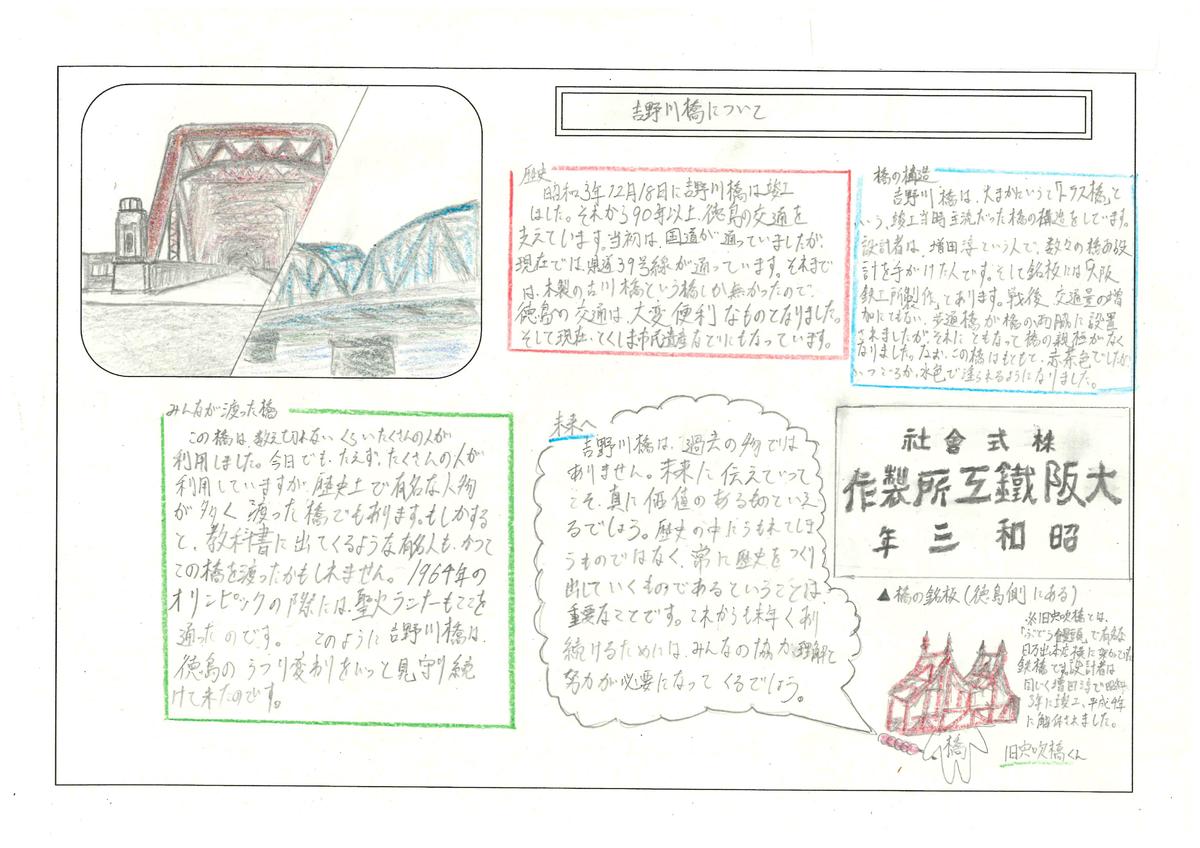 吉野川橋について
歴史
昭和3年12月18日に吉野川橋は竣工
しました。それから90年以上、徳島の交通を
支えています。当初は、国道が通っていましたが、
現在では県道39号線が通っています。それまで
は、木製の古川橋という橋しか無かったので、
徳島の交通は、大変便利なものとなりました。
そして現在、とくしま市民遺産などにもなっています。
橋の構造
吉野川橋は、大まかにいうと「トラス橋」と
いう、竣工当時主流だった橋の構造をしています。
設計者は、増田淳という人で、数々の橋の設
計を手がけた人です。そして銘板には「大阪
鉄工所製作」とあります。戦後、交通量の増
加にともない、歩道橋が橋の両脇に設置
されましたが、それにともなって橋の親柱がなく
なりました。なお、この橋はもともと、赤茶色でしたが、
いつごろか、水色で塗られるようになりました。
みんなが渡った橋
この橋は、数えて切れないくらいたくさんの人が
利用しました。今日でも、たえず、たくさんの人が
利用していますが、歴史上で有名な人物
が多く渡った橋でもあります。もしかする
と、教科書に出てくるような有名人も、かつて
この橋を渡ったかもしれません。1964年の
オリンピックの際には、聖火ランナーもここを
通ったのです。 このように吉野川橋は、
徳島のうつり変わりをじっと見守り続
けて来たのです。
未来へ
吉野川橋は、過去の物では
ありません。未来に伝えていって
こそ、真に価値のあるものといえ
るでしょう。歴史の中にうもれてしま
うものではなく、常に歴史をつくり
出していくものであるということは、
重要なことです。これからも末年くあり
続けるためには、みんなの協力、理解と
努力が必要になってくるでしょう。
株式會社
大阪鐵工所製作
昭和三年
▲橋の銘板(徳島側にある)
※旧穴吹橋とは、
「ぶどう饅頭」で有名な
鉄橋です。設計者は
同じく増田淳で昭和
3年に竣工、平成4年
に解体されました。
橋
旧穴吹橋くん